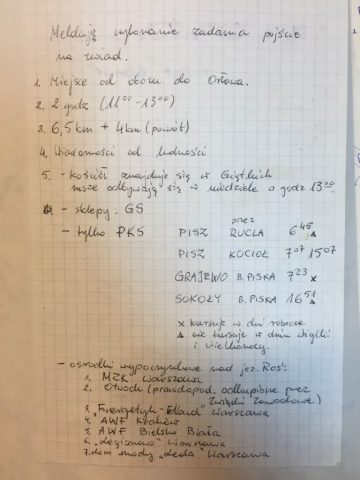 Melduję wykonanie zadania pójście
na zwiad.
1. Miejsce od obozu do Orłowa.
2. 2 godz (11⁰⁰ - 13⁰⁰)
3. 6,5 km + 4 km (powrót)
4. Wiadomości od ludności
5. - kościół znajduje się w
msze odbywają się w niedziele o godz 13⁰⁰.
- sklepy: GS
- tylko PKS PISZ przez RUCLA 6⁴⁵ ▲
PISZ KOCIOŁ 7⁰⁷ 15⁰⁷
GRAJEWO B. PISKA 7²³ x
SOKOŁY B. PISKA 16⁵¹ ▲
x kursuje w dni robocze
▲ nie kursuje w dniu wigilii
i Wielkanocy.
- ośrodki wypoczynkowe nad jez. Roś:
1. MZK Warszawa
2. Otwock (prawdopod. odkupione przez
Związki Zawodowe)
3. „Energetyk - " Warszawa
4. AWF Kraków
5. AWF Bielsko Biała
6. „Legionowo" Warszawa
7. dom mody „Leda" Warszawa